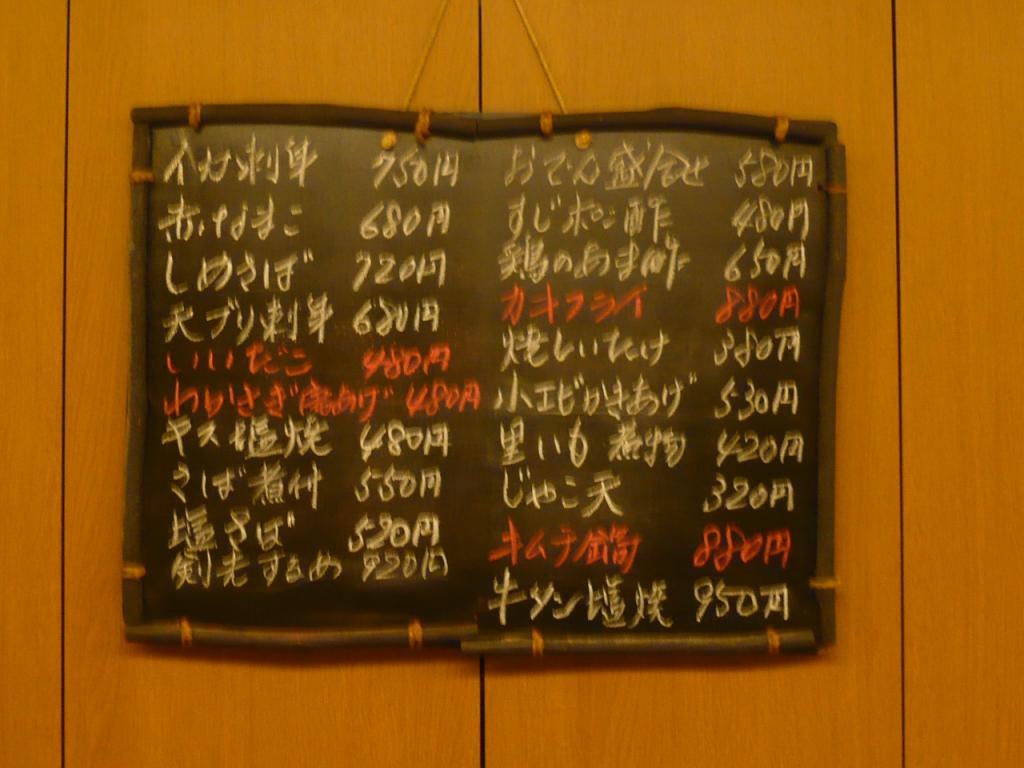 イカ刺身 750円
赤なまこ 680円
しめさば 720円
天ブリ刺身 680円
いいだこ 480円
わかさぎ唐あげ 480円
キス塩焼 480円
さば煮付 550円
塩さば 520円
剣先するめ 920円
おでん盛合せ 580円
すじポン酢 480円
鶏のあま酢 650円
カキフライ 880円
焼しいたけ 380円
小エビかきあげ 530円
里いも煮物 420円
じゃこ天 320円
キムチ鍋 880円
牛タン塩焼 950円